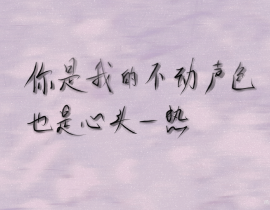 你是我的不动声色
也是心头一热